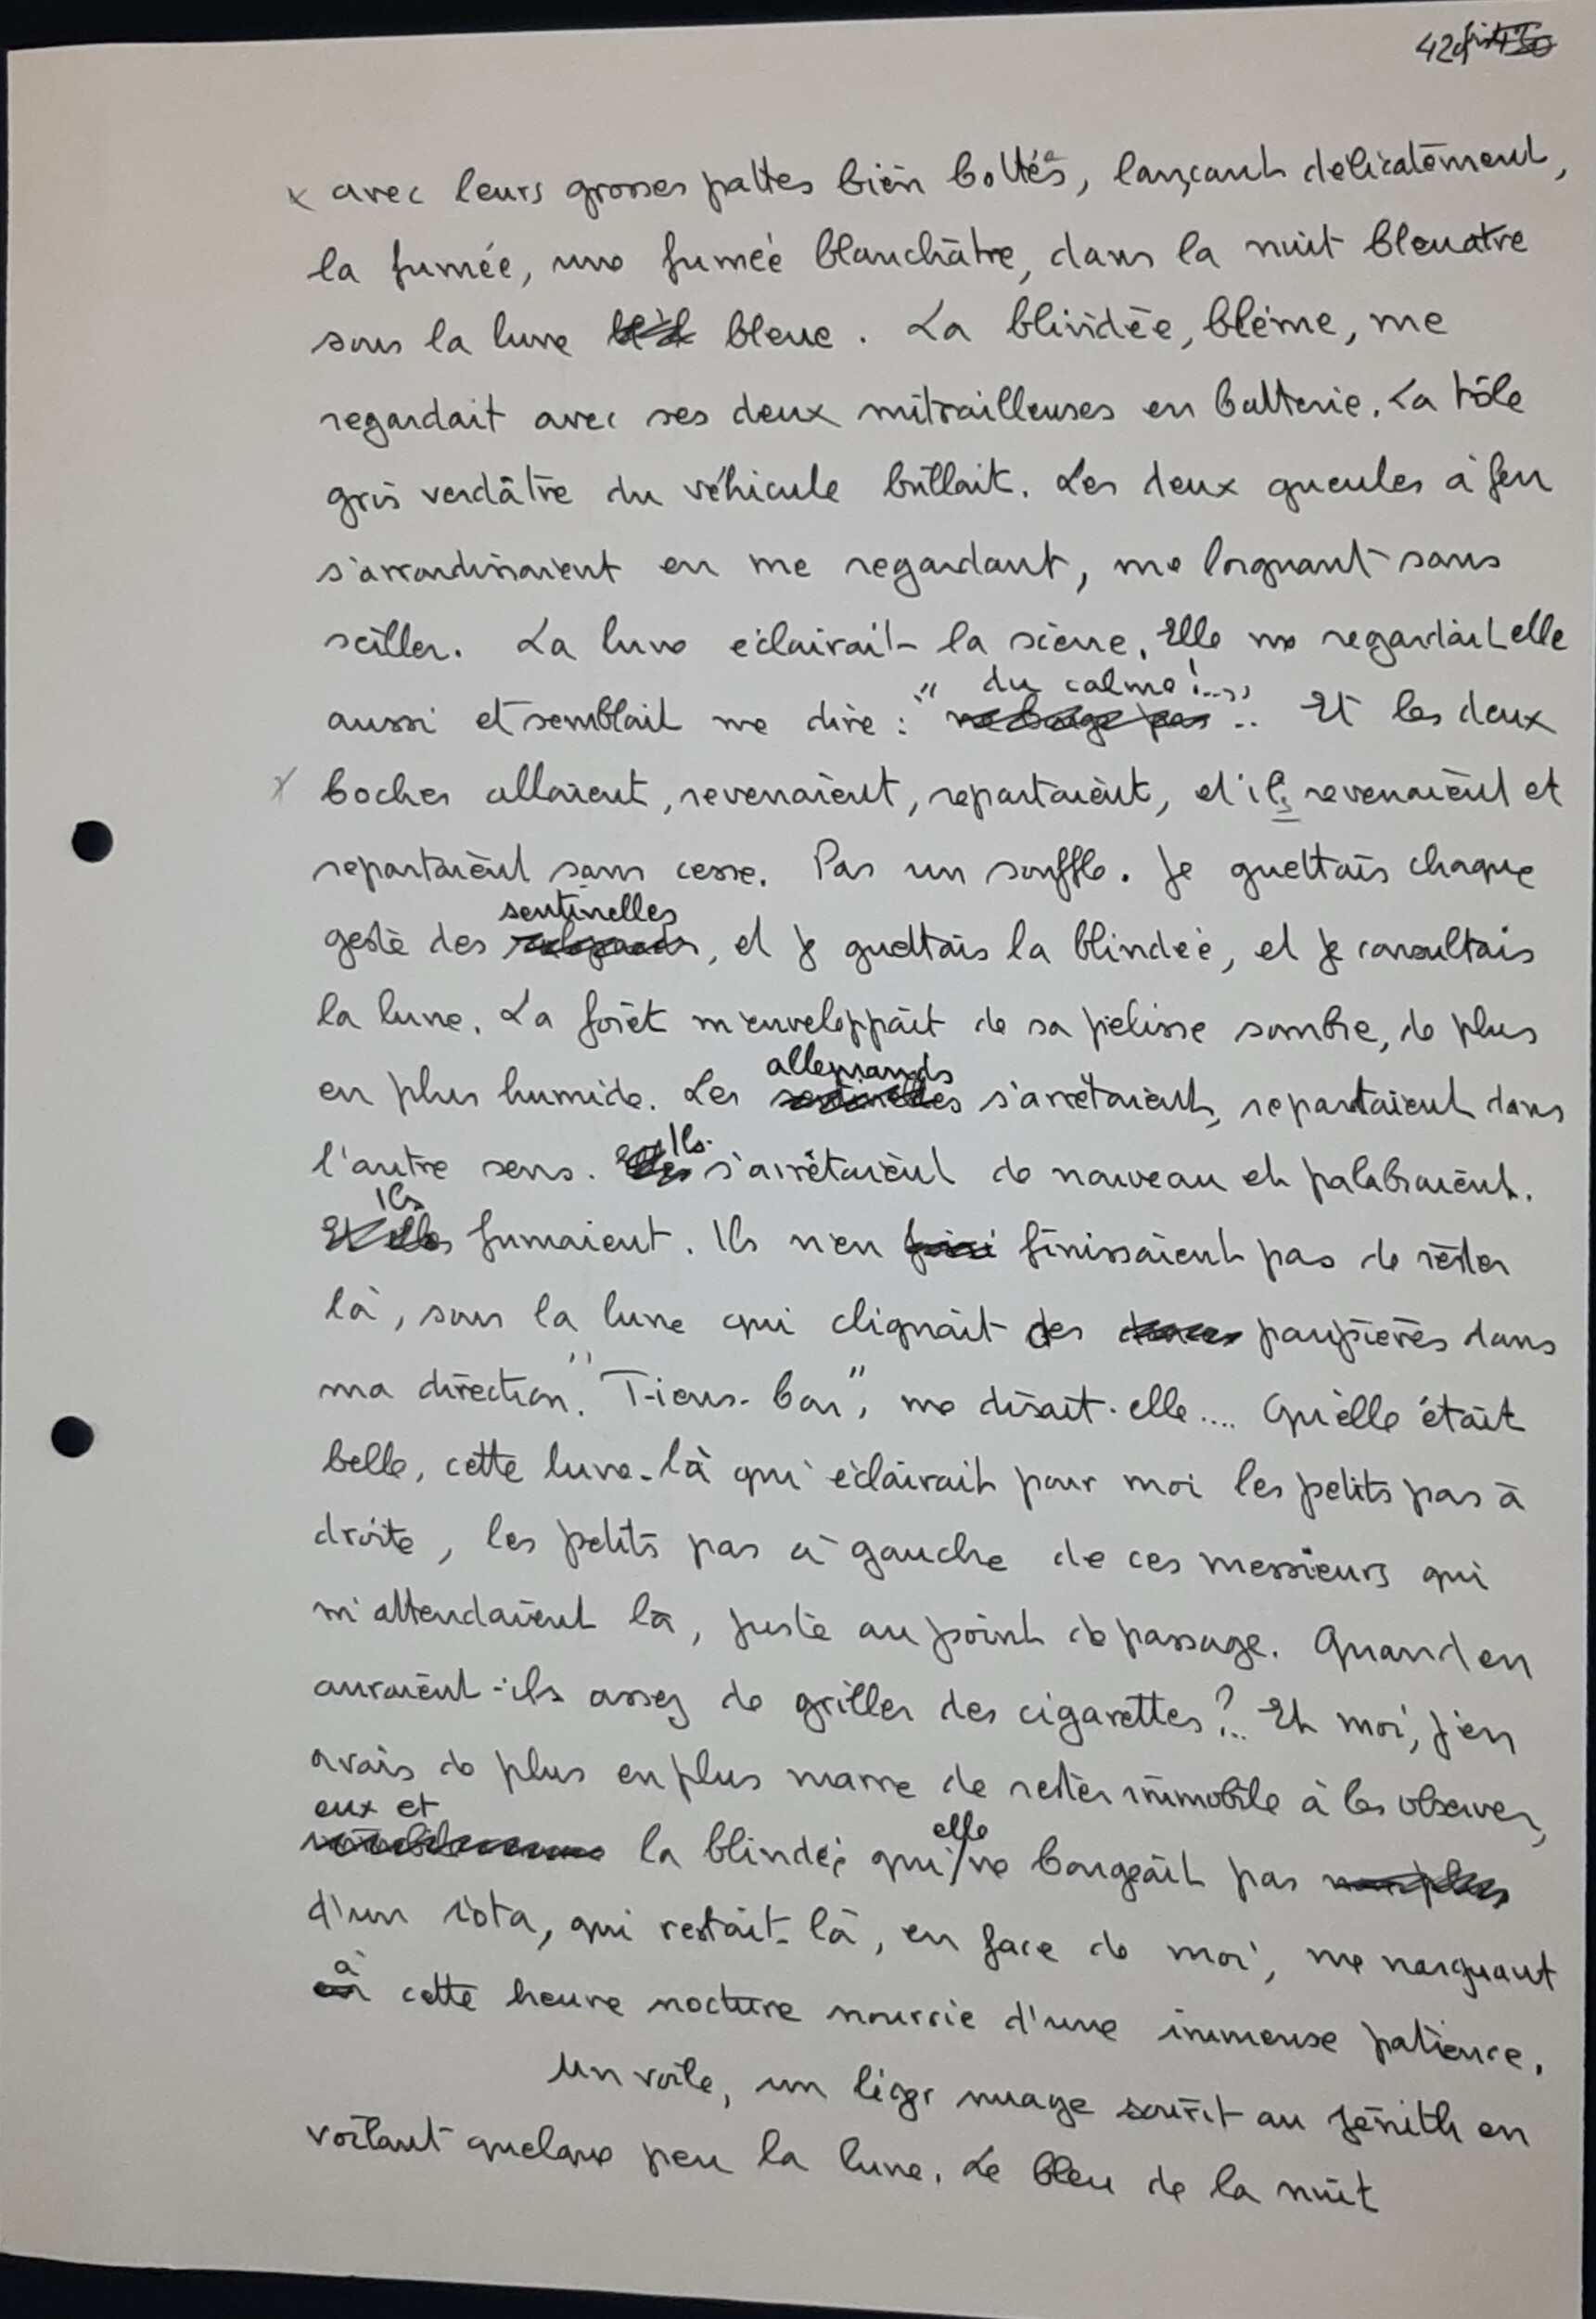 429
x avec leurs grosses pattes bien bottées, lançant délicatement,
la fumée, une fumée blanchâtre, dans la nuit bleuatre
sous la lune bleue. La blindée, blême, me
regardait avec ses deux mitrailleuses en batterie. La tôle
gris verdâtre du véhicule brillait. Les deux gueules à feu
s'arrondissaient en me regardant, me lorgnant sans
sciller. La lune éclairait la scène. Elle me regardait elle
aussi et semblait me dire : "du calme !..." Et les deux
x boches allaient, revenaient, repartaient, et ils revenaient et
repartaient sans cesse. Pas un souffle. Je guettais chaque
geste des sentinelles, et je guettais la blindée, et je consultais
la lune. La forêt m'enveloppait de sa pelisse sombre, de plus
en plus humide. Les allemands s'arrêtaient, repartaient dans
l'autre sens. Ils s'arrêtaient de nouveau et palabraient.
Ils fumaient. Ils n'en finissaient pas de rester
là, sous la lune qui clignait des paupières dans
ma direction. "Tiens-bon", me disait-elle.... Qu'elle était
belle, cette lune-là qui éclairait pour moi les petits pas à
droite, les petits pas à gauche de ces messieurs qui
m'attendaient là, juste au point de passage. Quand en
auraient-ils assez de griller des cigarettes ?.. Et moi, j'en
avais de plus en plus marre de rester immobile à les observer,
eux et la blindée qui elle ne bougeait pas
d'un iota, qui restait-là, en face de moi, me narguant
à cette heure nocture nourrie d'une immense patience.
Un voile, un léger nuage sourit au zénith en
voilant quelque peu la lune. Le bleu de la nuit